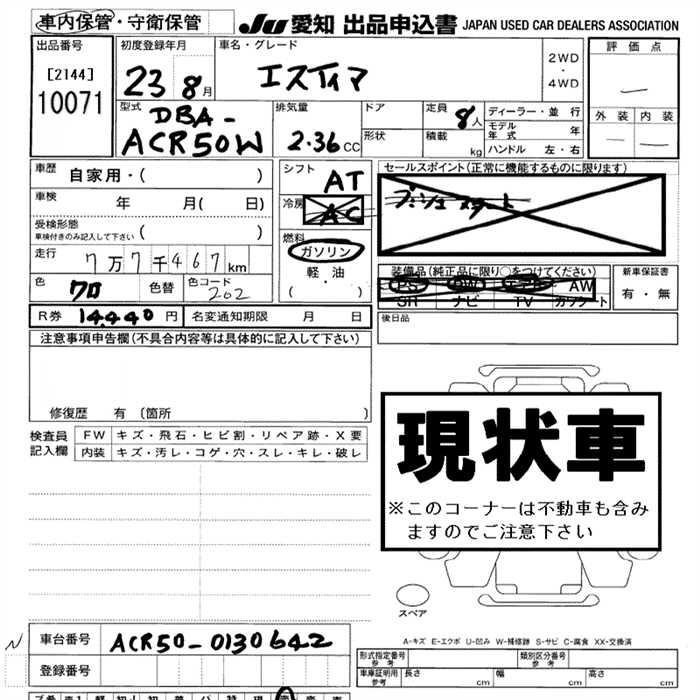 車内保管・守衛保管 Ju 愛知 出品申込書 JAPAN USED CAR DEALERS ASSOCIATION
出品番号 初度登録年月 車名・グレード 評価点
[2144] 23 8月 エスティマ 2WD・4WD
10071
型式 排気量 ドア 定員 8人 ディーラー・並行 外装 内装
DBA-
ACR50W 2.36cc 形状 積載 kg モデル年式 年
ハンドル 左・右
車歴 自家用・( ) シフト AT セールスポイント(正常に機能するものに限ります)
車検 年 月( 日) 冷房 AC プッシュスタート
受検形態
車検付きのみ記入して下さい ( ) 燃料
走行 7万7千467km ガソリン・軽油 ( ) 装備品(純正品に限り○をつけてください) 新車保証書
色 クロ 色替 色コード 202 PS PW エアB AW 有・無
SR ナビ TV カワシート
R券 14,440円 名変通知期限 月 日 後日品
注意事項申告欄(不具合内容等は具体的に記入して下さい)
修復歴 有(箇所 )
検査員記入欄 FW キズ・飛石・ヒビ割・リペア跡・X要
内装 キズ・汚レ・コゲ・穴・スレ・キレ・破レ
現状車
※このコーナーは不動車も含み
ますのでご注意下さい
スペア
A-キズ E-エクボ U-凹み W-補修跡 S-サビ C-腐食 XX-交換済
車台番号 ACR50-0130642 形式指定番号 参考 類別区分番号 参考
登録番号 車庫証明用 参考 長さ cm 幅 cm 高さ cm